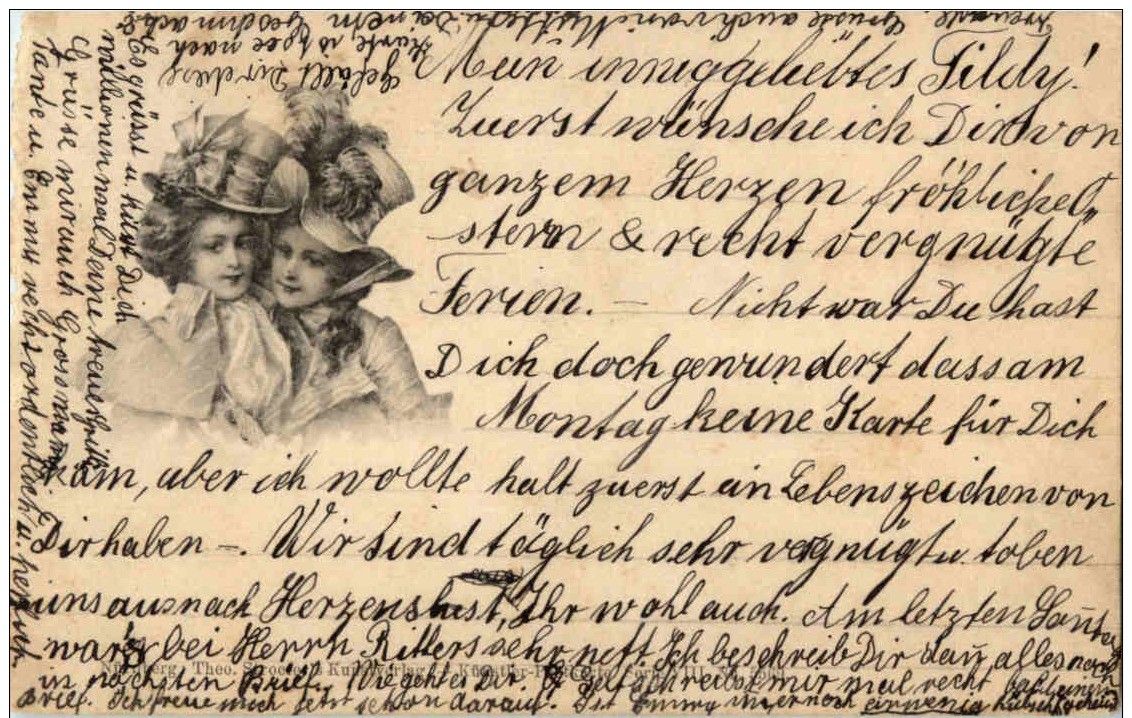 Mein inniggeliebtes Tildy!
Zuerst wünsche ich Dir von
ganzem Herzen fröhliche O„
stern & recht vergnügte
Ferien. — Nicht war Du hast
Dich doch gewundert dass am
Montag keine Karte für Dich
kam, aber ich wollte halt zuerst ein Lebenszeichen von
Dir haben —. Wir sind täglich sehr vergnügt u. toben
uns aus nach Herzenslust, Ihr wohl auch. Am letzten
war's bei Herrn Ritters sehr nett Ich beschreib Dir dan alles
in nächsten Brief. Wie geht es Dir. schreibst mir mal recht
Brief. Ich freue mich jetzt schon darauf. Ist Emmy immer noch ein wenig
Nürnberg, Theo. Stroefer's Kunstverlag
Es grüsst u. küsst Dich
millionenmal Deine treue
Grüsse mir auch Grossmama
Tante u. Emmy recht ordentlich u. herzlich.
Gefällt Dir diese
Karte is see nach
Deinem Geschmack?
Freunde. Grüsse auch von Mutter u.